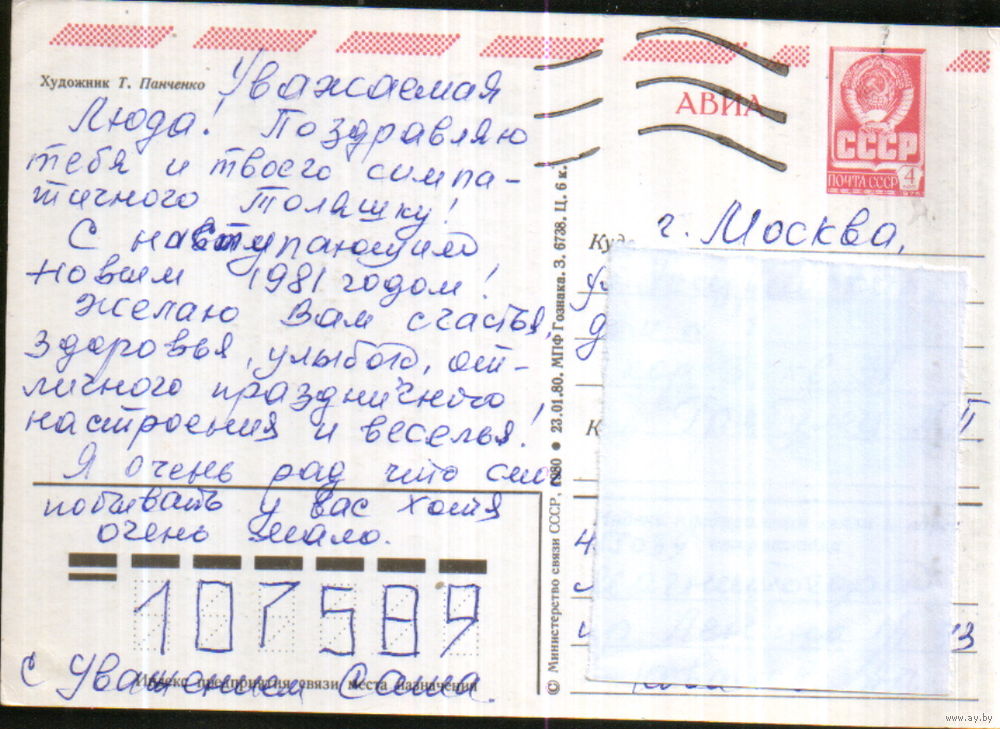 Художник Т. Панченко
Уважаемая
Люда! Поздравляю
тебя и твоего симпа-
тичного Толяшку!
С наступающим
новым 1981 годом!
Желаю Вам счастья,
здоровья, улыбок, от-
личного праздничного
настроения и веселья!
Я очень рад что смог
побывать у вас хотя
очень мало.
107589
Индекс предприятия связи места назначения
С Уважением Саша.
© Министерство связи СССР, 1980 ● 23.01.80. МПФ Гознака. З. 6738. Ц. 6 к.
АВИА
СССР
4
ПОЧТА СССР
Куда г. Москва,
www.ay.by